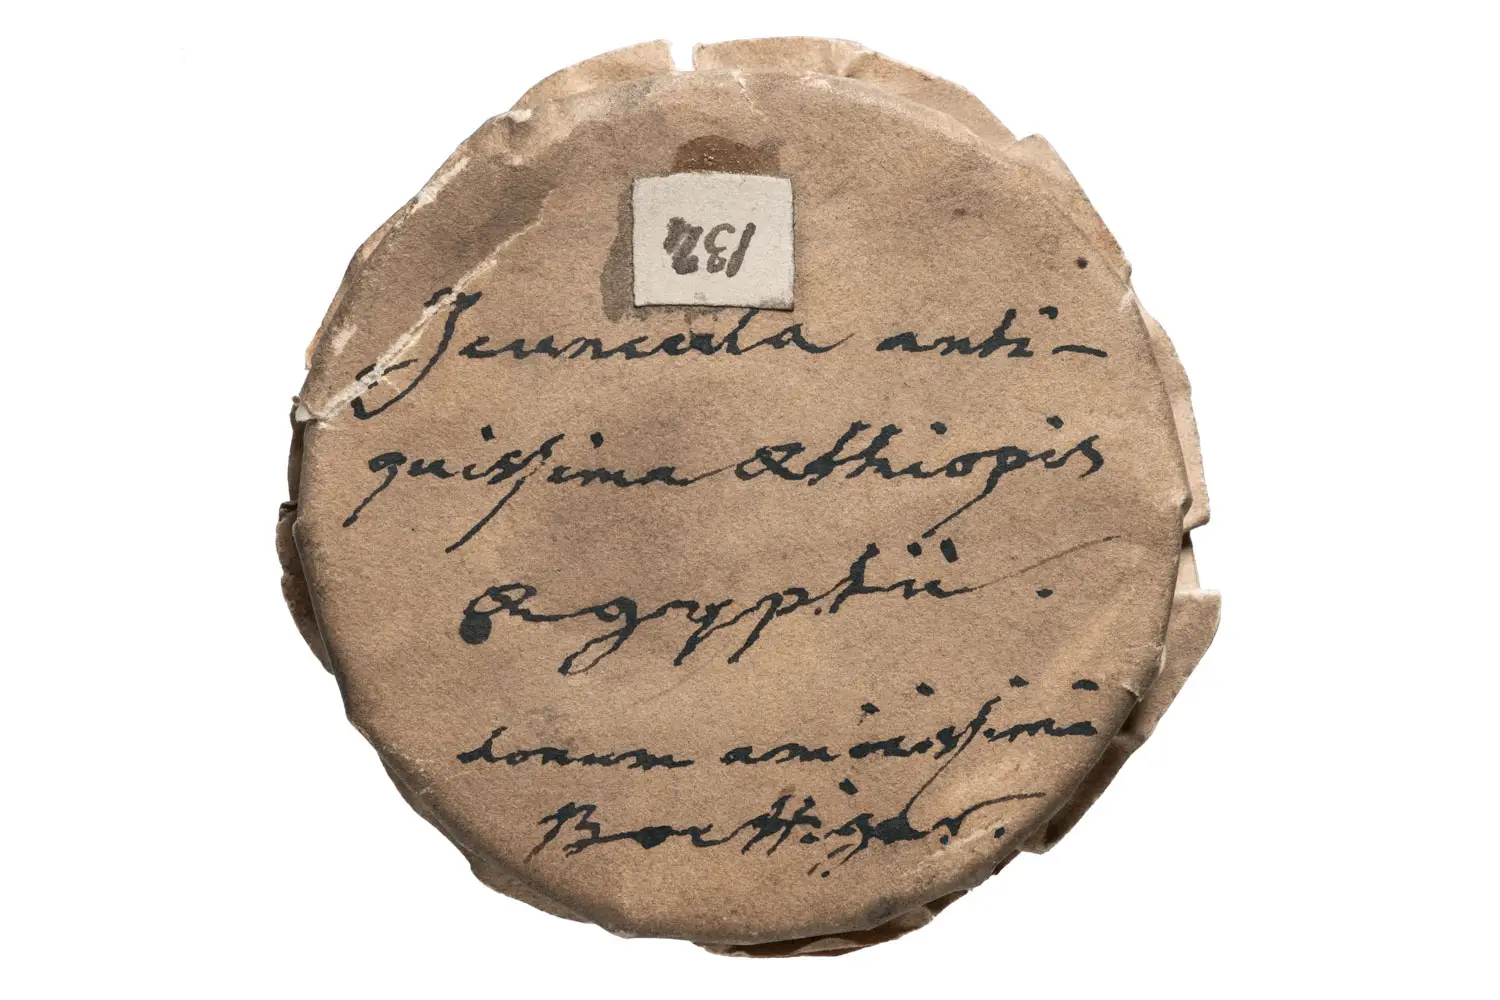 134
Icuncula anti-
quissima Æthiopis
Ægyptii.
donum amicissimi
Boettiger.